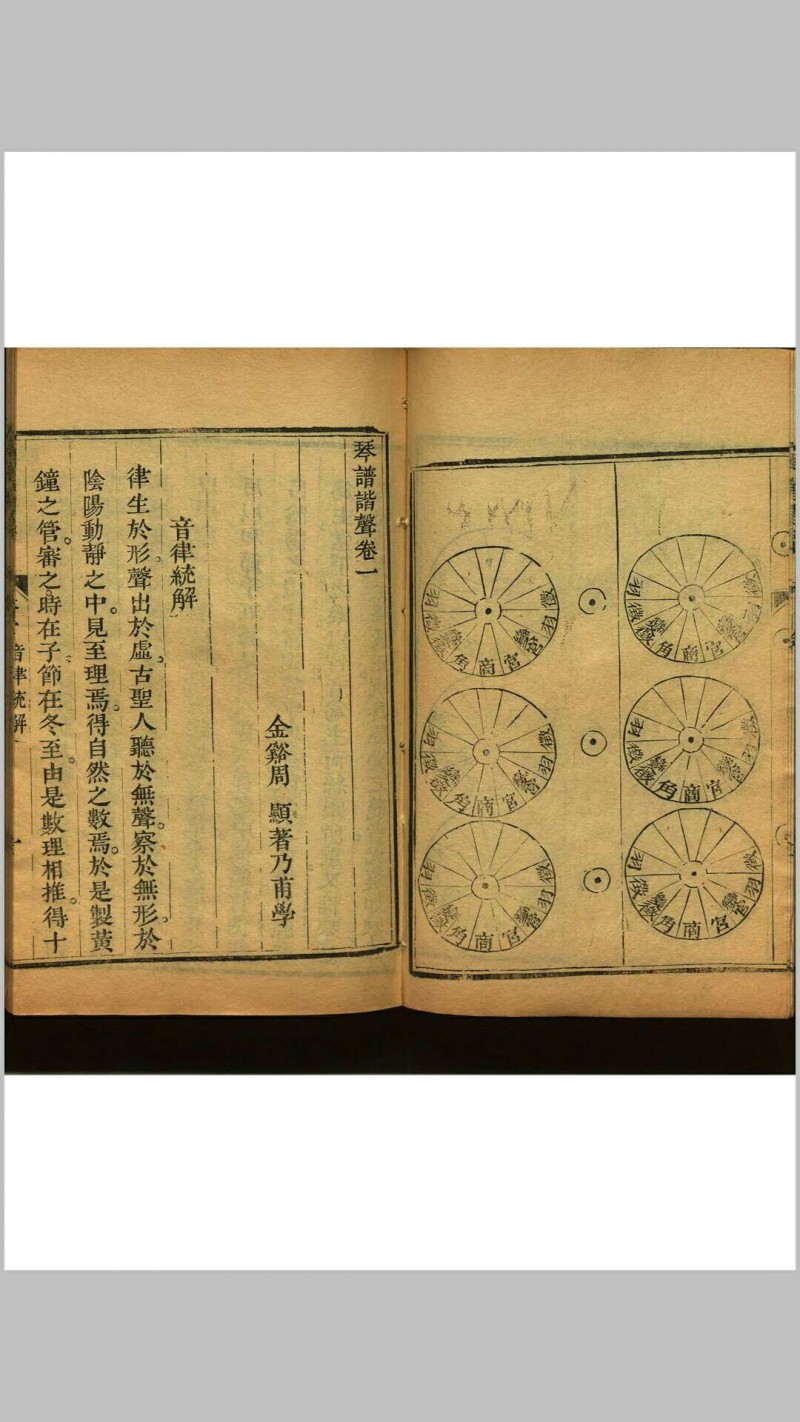 徵羽變宮宮商角變徵徵羽
徵羽變宮宮商角變徵徵羽
徵羽變宮宮商角變徵徵羽
徵羽變宮宮商角變徵徵羽
徵羽變宮宮商角變徵徵羽
徵羽變宮宮商角變徵徵羽
琴譜諧聲卷一
金谿周 顯著乃甫學
音律統解
律生於形。聲出於虛。古聖人聽於無聲。察於無形。於
陰陽動靜之中。見至理焉。得自然之數焉。於是製黃
鐘之管。審之時在子。節在冬至。由是數理相推。得十
音律統解